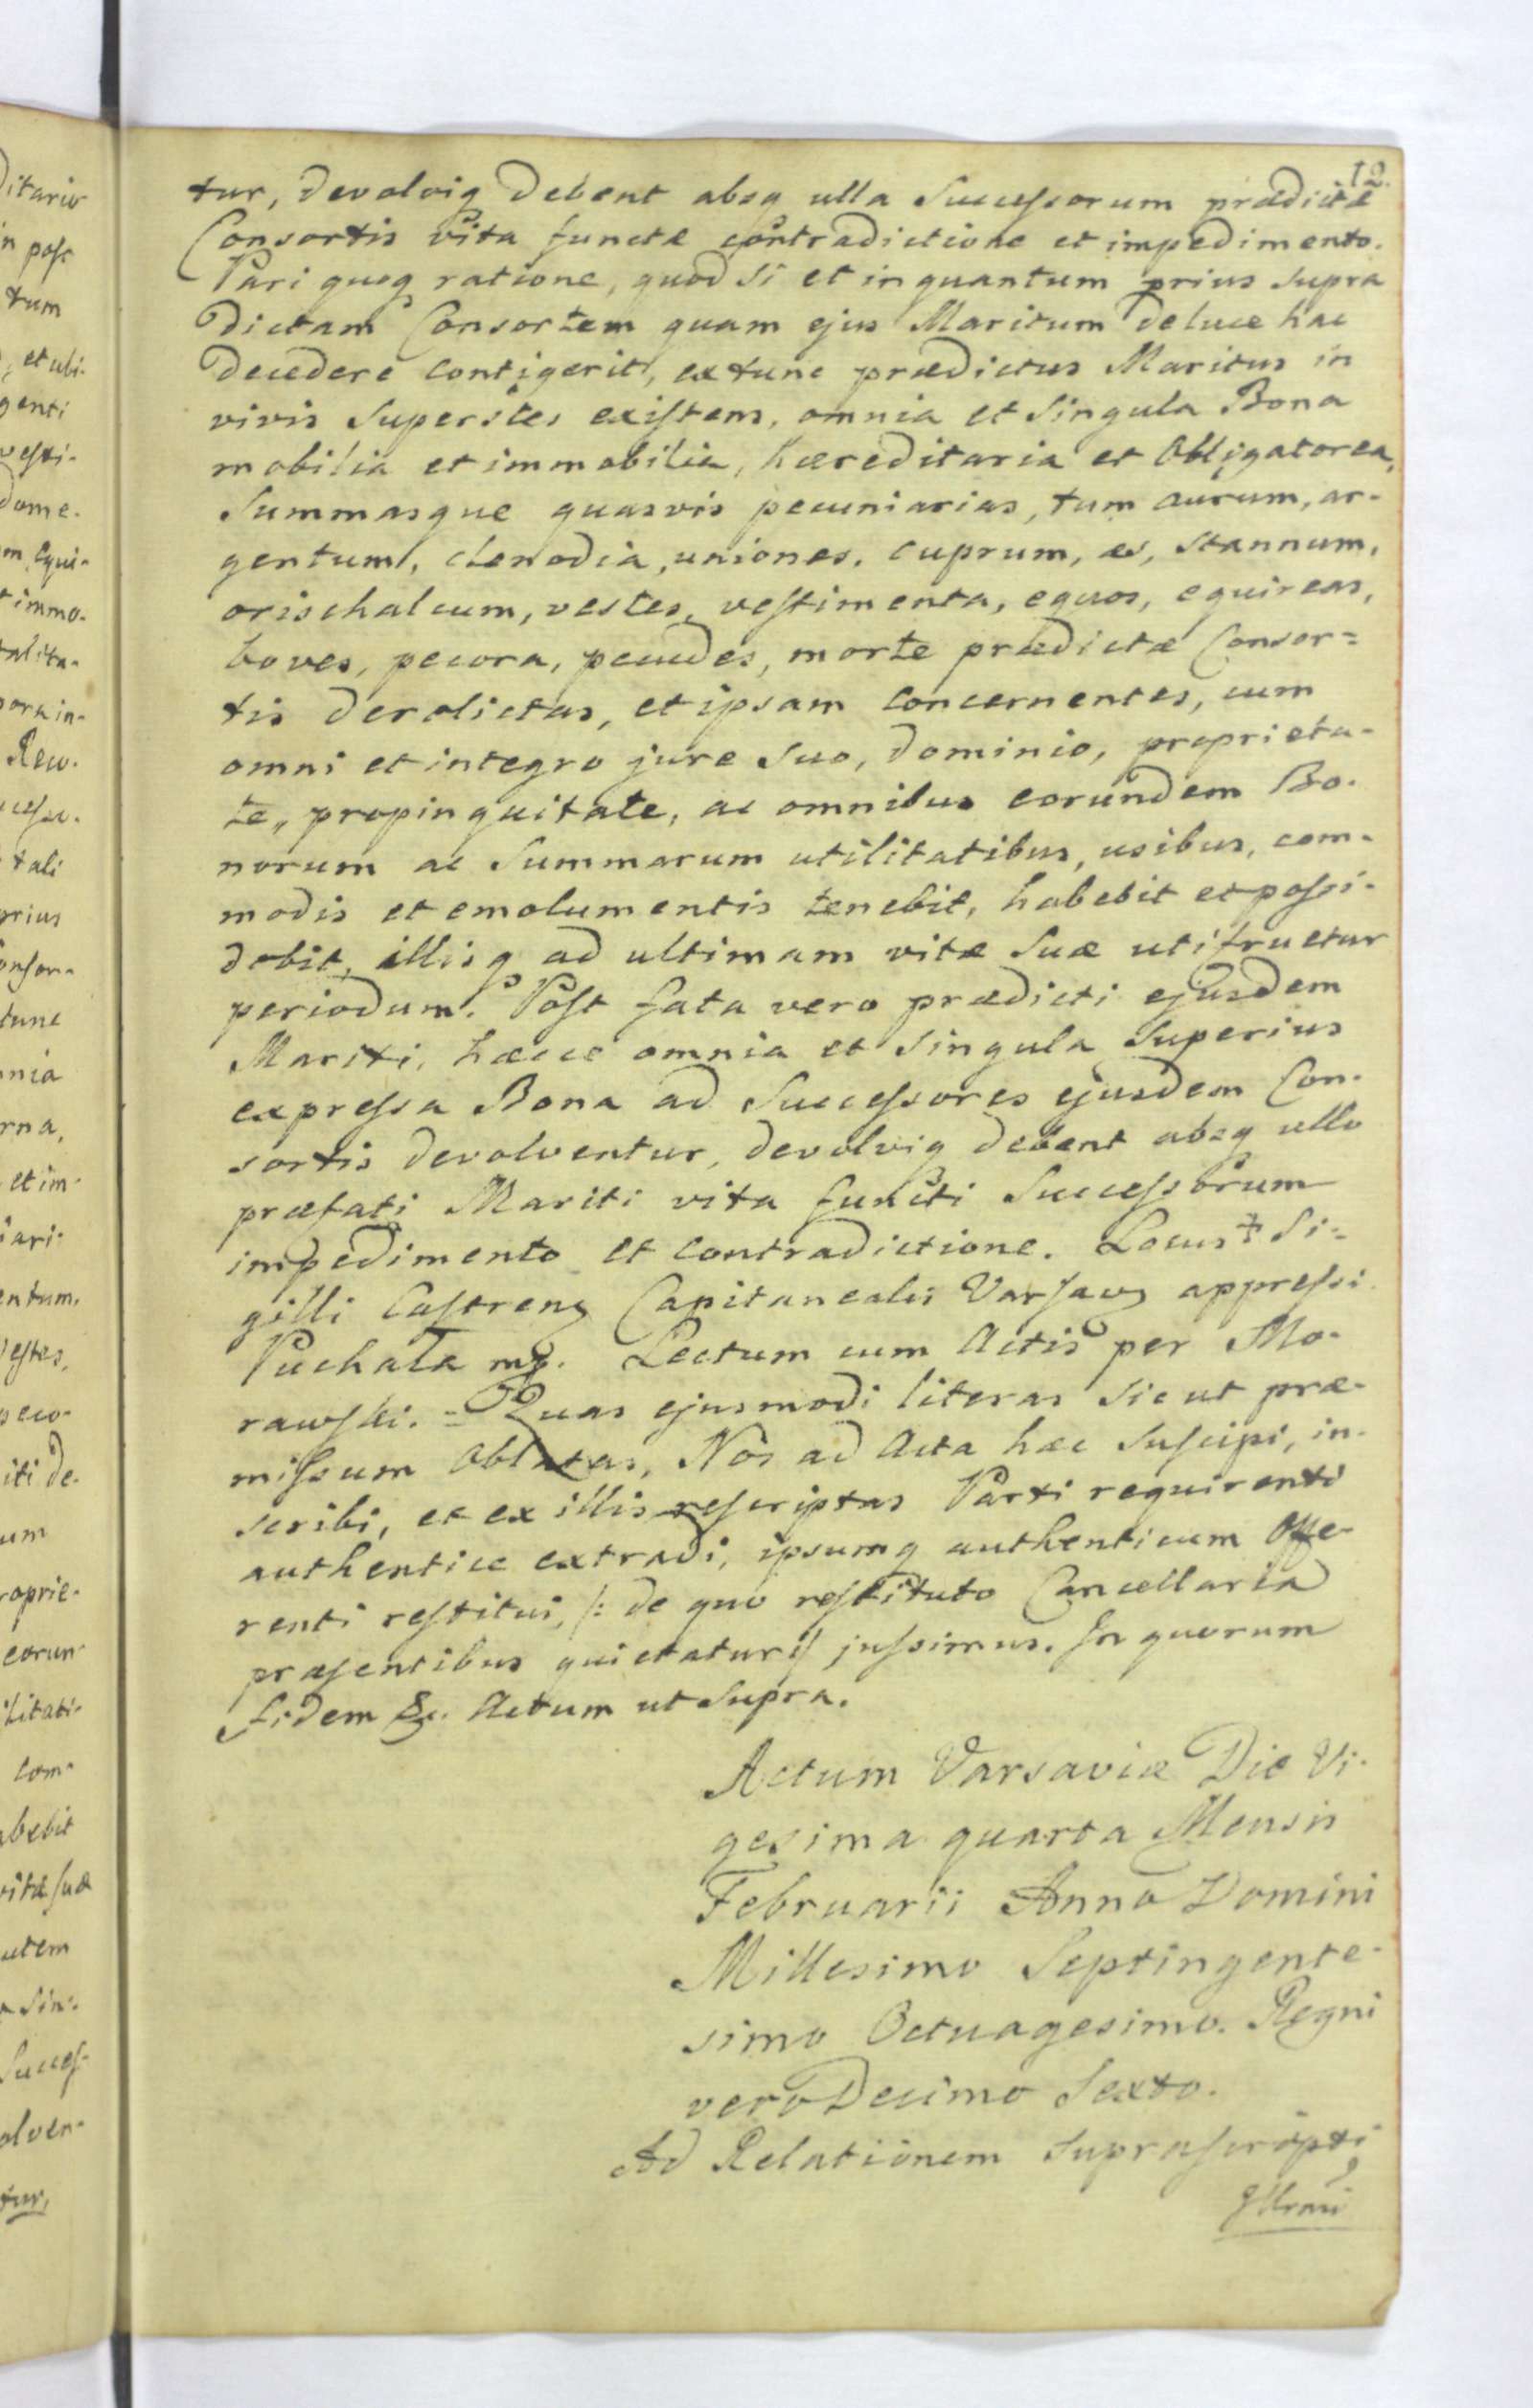 12.
tur, devolviq debent absq ulla Successorum prædictæ
Consortis vita functæ contradictione et impedimento.
Pari quoq ratione, quod si et in quantum prius supra
dictam Consortem quam ejus Maritum de luce hac
decedere contigerit, extunc prædictus Maritus in
vivis superstes existens, omnia et singula Bona
mobilia et immobilia, hæreditaria et obligatorea,
summasque quasvis pecuniarias, tum aurum, ar-
gentum, clenodia, uniones, cuprum, æs, stannum,
orischalcum, vestes, vestimenta, equos, equireas,
boves, pecora, pecudes, morte prædictæ Consor=
tis derelictas, et ipsam concernentes, cum
omni et integro jure suo, dominio, proprieta-
te, propinquitate, ac omnibus eorundem Bo-
norum ac Summarum utilitatibus, usibus, com-
modis et emolumentis tenebit, habebit et possi-
debit, illisq ad ultimam vitæ suæ utifruetur
periodum. Post fata vero prædicti ejusdem
Mariti, hæcce omnia et singula superius
expressa Bona ad Successores ejusdem Con-
sortis devolventur, devolviq debent absq ullo
præfati Mariti vita functi Successorum
impedimento et contradictione. Locus + Si-
gilli Castren Capitanealis Varsav appressi.
Puchała mp. Lectum cum Actis per Mo-
rawski. = Quas ejusmodi literas sicut præ-
missum oblatas, Nos ad Acta hæc suscipi, in-
scribi, et ex illis rescriptas Parti requirenti
authentice extradi, ipsumq authenticum offe-
renti restitui, /: de quo restituto Cancellaria
præsentibus quietatur :/ jussimus. In quorum
fidem &c. Actum ut supra.
Actum Varsaviæ Die Vi-
gesima quarta Mensis
Februarii Anno Domini
Millesimo Septingente-
simo Octuagesimo. Regni
vero Decimo Sexto.
Ad Relationem suprascripti